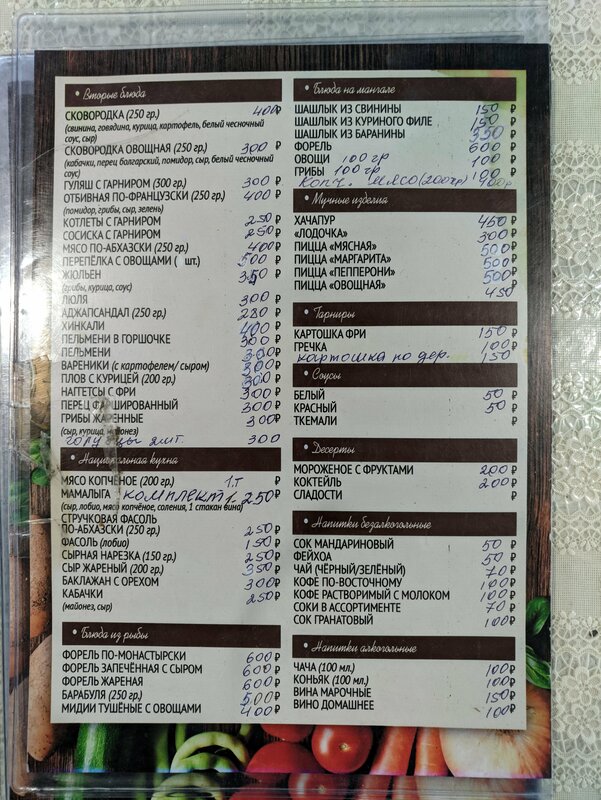 Вторые блюда
СКОВОРОДКА (250 гр.) 400 ₽
(свинина, говядина, курица, картофель, белый чесночный
соус, сыр)
СКОВОРОДКА ОВОЩНАЯ (250 гр.) 300 ₽
(кабачки, перец болгарский, помидор, сыр, белый чесночный
соус)
ГУЛЯШ С ГАРНИРОМ (300 гр.) 300 ₽
ОТБИВНАЯ ПО-ФРАНЦУЗСКИ (250 гр.) 400 ₽
(помидор, грибы, сыр, зелень)
КОТЛЕТЫ С ГАРНИРОМ 250 ₽
СОСИСКА С ГАРНИРОМ 250 ₽
МЯСО ПО-АБХАЗСКИ (250 гр.) 400 ₽
ПЕРЕПЁЛКА С ОВОЩАМИ ( шт.) 500 ₽
ЖЮЛЬЕН 350 ₽
(грибы, курица, соус)
ЛЮЛЯ 300 ₽
АДЖАПСАНДАЛ (250 гр.) 280 ₽
ХИНКАЛИ 400 ₽
ПЕЛЬМЕНИ В ГОРШОЧКЕ 300 ₽
ПЕЛЬМЕНИ 300 ₽
ВАРЕНИКИ (с картофелем/ сыром) 300 ₽
ПЛОВ С КУРИЦЕЙ (200 гр.) 300 ₽
НАГГЕТСЫ С ФРИ 300 ₽
ПЕРЕЦ ФАРШИРОВАННЫЙ 300 ₽
ГРИБЫ ЖАРЕННЫЕ 300 ₽
(сыр, курица, майонез)
300
Национальная кухня
МЯСО КОПЧЁНОЕ (200 гр.) 1.т ₽
МАМАЛЫГА комплект 250 ₽
(сыр, лобио, мясо копчёное, соления, 1 стакан вина)
СТРУЧКОВАЯ ФАСОЛЬ
ПО-АБХАЗСКИ (250 гр.) 250 ₽
ФАСОЛЬ (лобио) 150 ₽
СЫРНАЯ НАРЕЗКА (150 гр.) 250 ₽
СЫР ЖАРЕНЫЙ (200 гр.) 350 ₽
БАКЛАЖАН С ОРЕХОМ 300 ₽
КАБАЧКИ 250 ₽
(майонез, сыр)
Блюда из рыбы
ФОРЕЛЬ ПО-МОНАСТЫРСКИ 600 ₽
ФОРЕЛЬ ЗАПЕЧЁННАЯ С СЫРОМ 600 ₽
ФОРЕЛЬ ЖАРЕНАЯ 600 ₽
БАРАБУЛЯ (250 гр.) 500 ₽
МИДИИ ТУШЁНЫЕ С ОВОЩАМИ 400 ₽
Блюда на мангале
ШАШЛЫК ИЗ СВИНИНЫ 150 ₽
ШАШЛЫК ИЗ КУРИНОГО ФИЛЕ 150 ₽
ШАШЛЫК ИЗ БАРАНИНЫ 350 ₽
ФОРЕЛЬ 600 ₽
ОВОЩИ 100 гр 100 ₽
ГРИБЫ 100 гр 100 ₽
Копч. мясо (200гр)
Мучные изделия
ХАЧАПУР 450 ₽
«ЛОДОЧКА» 300 ₽
ПИЦЦА «МЯСНАЯ» 500 ₽
ПИЦЦА «МАРГАРИТА» 500 ₽
ПИЦЦА «ПЕППЕРОНИ» 500 ₽
ПИЦЦА «ОВОЩНАЯ» 450 ₽
Гарниры
КАРТОШКА ФРИ 150 ₽
ГРЕЧКА 100 ₽
картошка по дер. 150
Соусы
БЕЛЫЙ 50 ₽
КРАСНЫЙ 50 ₽
ТКЕМАЛИ ₽
Десерты
МОРОЖЕНОЕ С ФРУКТАМИ 200 ₽
КОКТЕЙЛЬ 200 ₽
СЛАДОСТИ ₽
Напитки безалкогольные
СОК МАНДАРИНОВЫЙ 50 ₽
ФЕЙХОА 50 ₽
ЧАЙ (ЧЁРНЫЙ/ЗЕЛЁНЫЙ) 70 ₽
КОФЕ ПО-ВОСТОЧНОМУ 100 ₽
КОФЕ РАСТВОРИМЫЙ С МОЛОКОМ 100 ₽
СОКИ В АССОРТИМЕНТЕ 70 ₽
СОК ГРАНАТОВЫЙ 100 ₽
Напитки алкогольные
ЧАЧА (100 мл.) 100 ₽
КОНЬЯК (100 мл.) 100 ₽
ВИНА МАРОЧНЫЕ 150 ₽
ВИНО ДОМАШНЕЕ 100 ₽